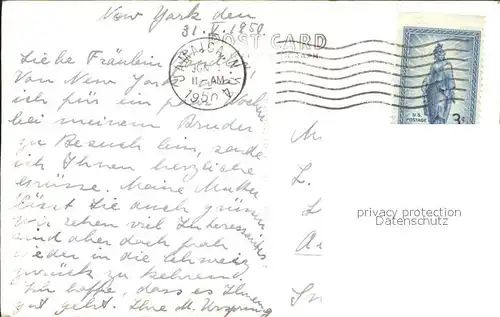 New York den
31. V. 1950.
POST CARD
Liebe Fräulein
JAMAICA, N.Y.
JUN 1
11 AM
1950
Von New York, wo
ich für ein paar Wochen
bei meinem Bruder
zu Besuch bin, sende
ich Ihnen herzliche
Grüsse. Meine Mutter
lässt Sie auch grüssen
Wir sehen viel Interessantes
sind aber doch froh
wieder in die Schweiz
zurück zu kehren.
Ich hoffe, dass es Ihnen
gut geht. Ihre M. Ursprung
U.S. POSTAGE
3¢
M
L.
L
A
privacy protection
Datenschutz